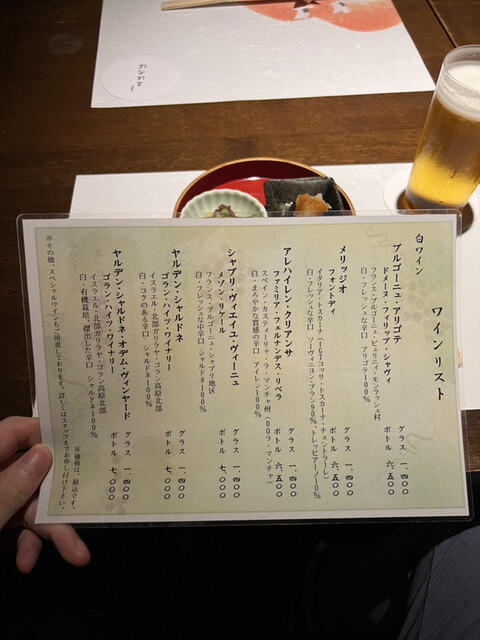 おなおま
ワインリスト
白ワイン
ブルゴーニュ・アリゴテ
ドメーヌ・フィリップ・シャヴィ
フランス・ブルゴーニュ・ピュリニィ・モンラッシェ村
白・フレッシュな辛口 アリゴテ100%
グラス 一、四〇〇
ボトル 六、五〇〇
メリッジオ
フォントディ
イタリア・トスカーナ(IGTコッリ・トスカーナ・チェントラーレ)
白・フレッシュな辛口 ソーヴィニヨン・ブラン90%、トレッビアーノ10%
グラス 一、四〇〇
ボトル 六、五〇〇
アレハイレン・クリアンサ
ファミリア・フェルナンデス・リベラ
スペイン・カスティーリャ・ラ・マンチャ州(DOラ・マンチャ)
白・まろやかな質感の辛口 アイレン100%
グラス 一、四〇〇
ボトル 六、五〇〇
シャブリ・ヴィエイユ・ヴィーニュ
メゾン・リガール
フランス・ブルゴーニュ・シャブリ地区
白・フレッシュな中辛口 シャルドネ100%
ボトル 七、〇〇〇
ヤルデン・シャルドネ
ゴラン・ハイツ・ワイナリー
イスラエル・北部ガリラヤ・ゴラン高原北部
白・コクのある辛口 シャルドネ100%
グラス 一、四〇〇
ボトル 七、〇〇〇
ヤルデン・シャルドネ・オデム・ヴィンヤード
ゴラン・ハイツ・ワイナリー
イスラエル・北部ガリラヤ・ゴラン高原北部
白・有機栽培、傑出した辛口 シャルドネ100%
グラス 一、四〇〇
ボトル 七、〇〇〇
※価格は、税込です。
※その他、スペシャルワインもご用意しております。詳しくはスタッフまでお申し付け下さい。